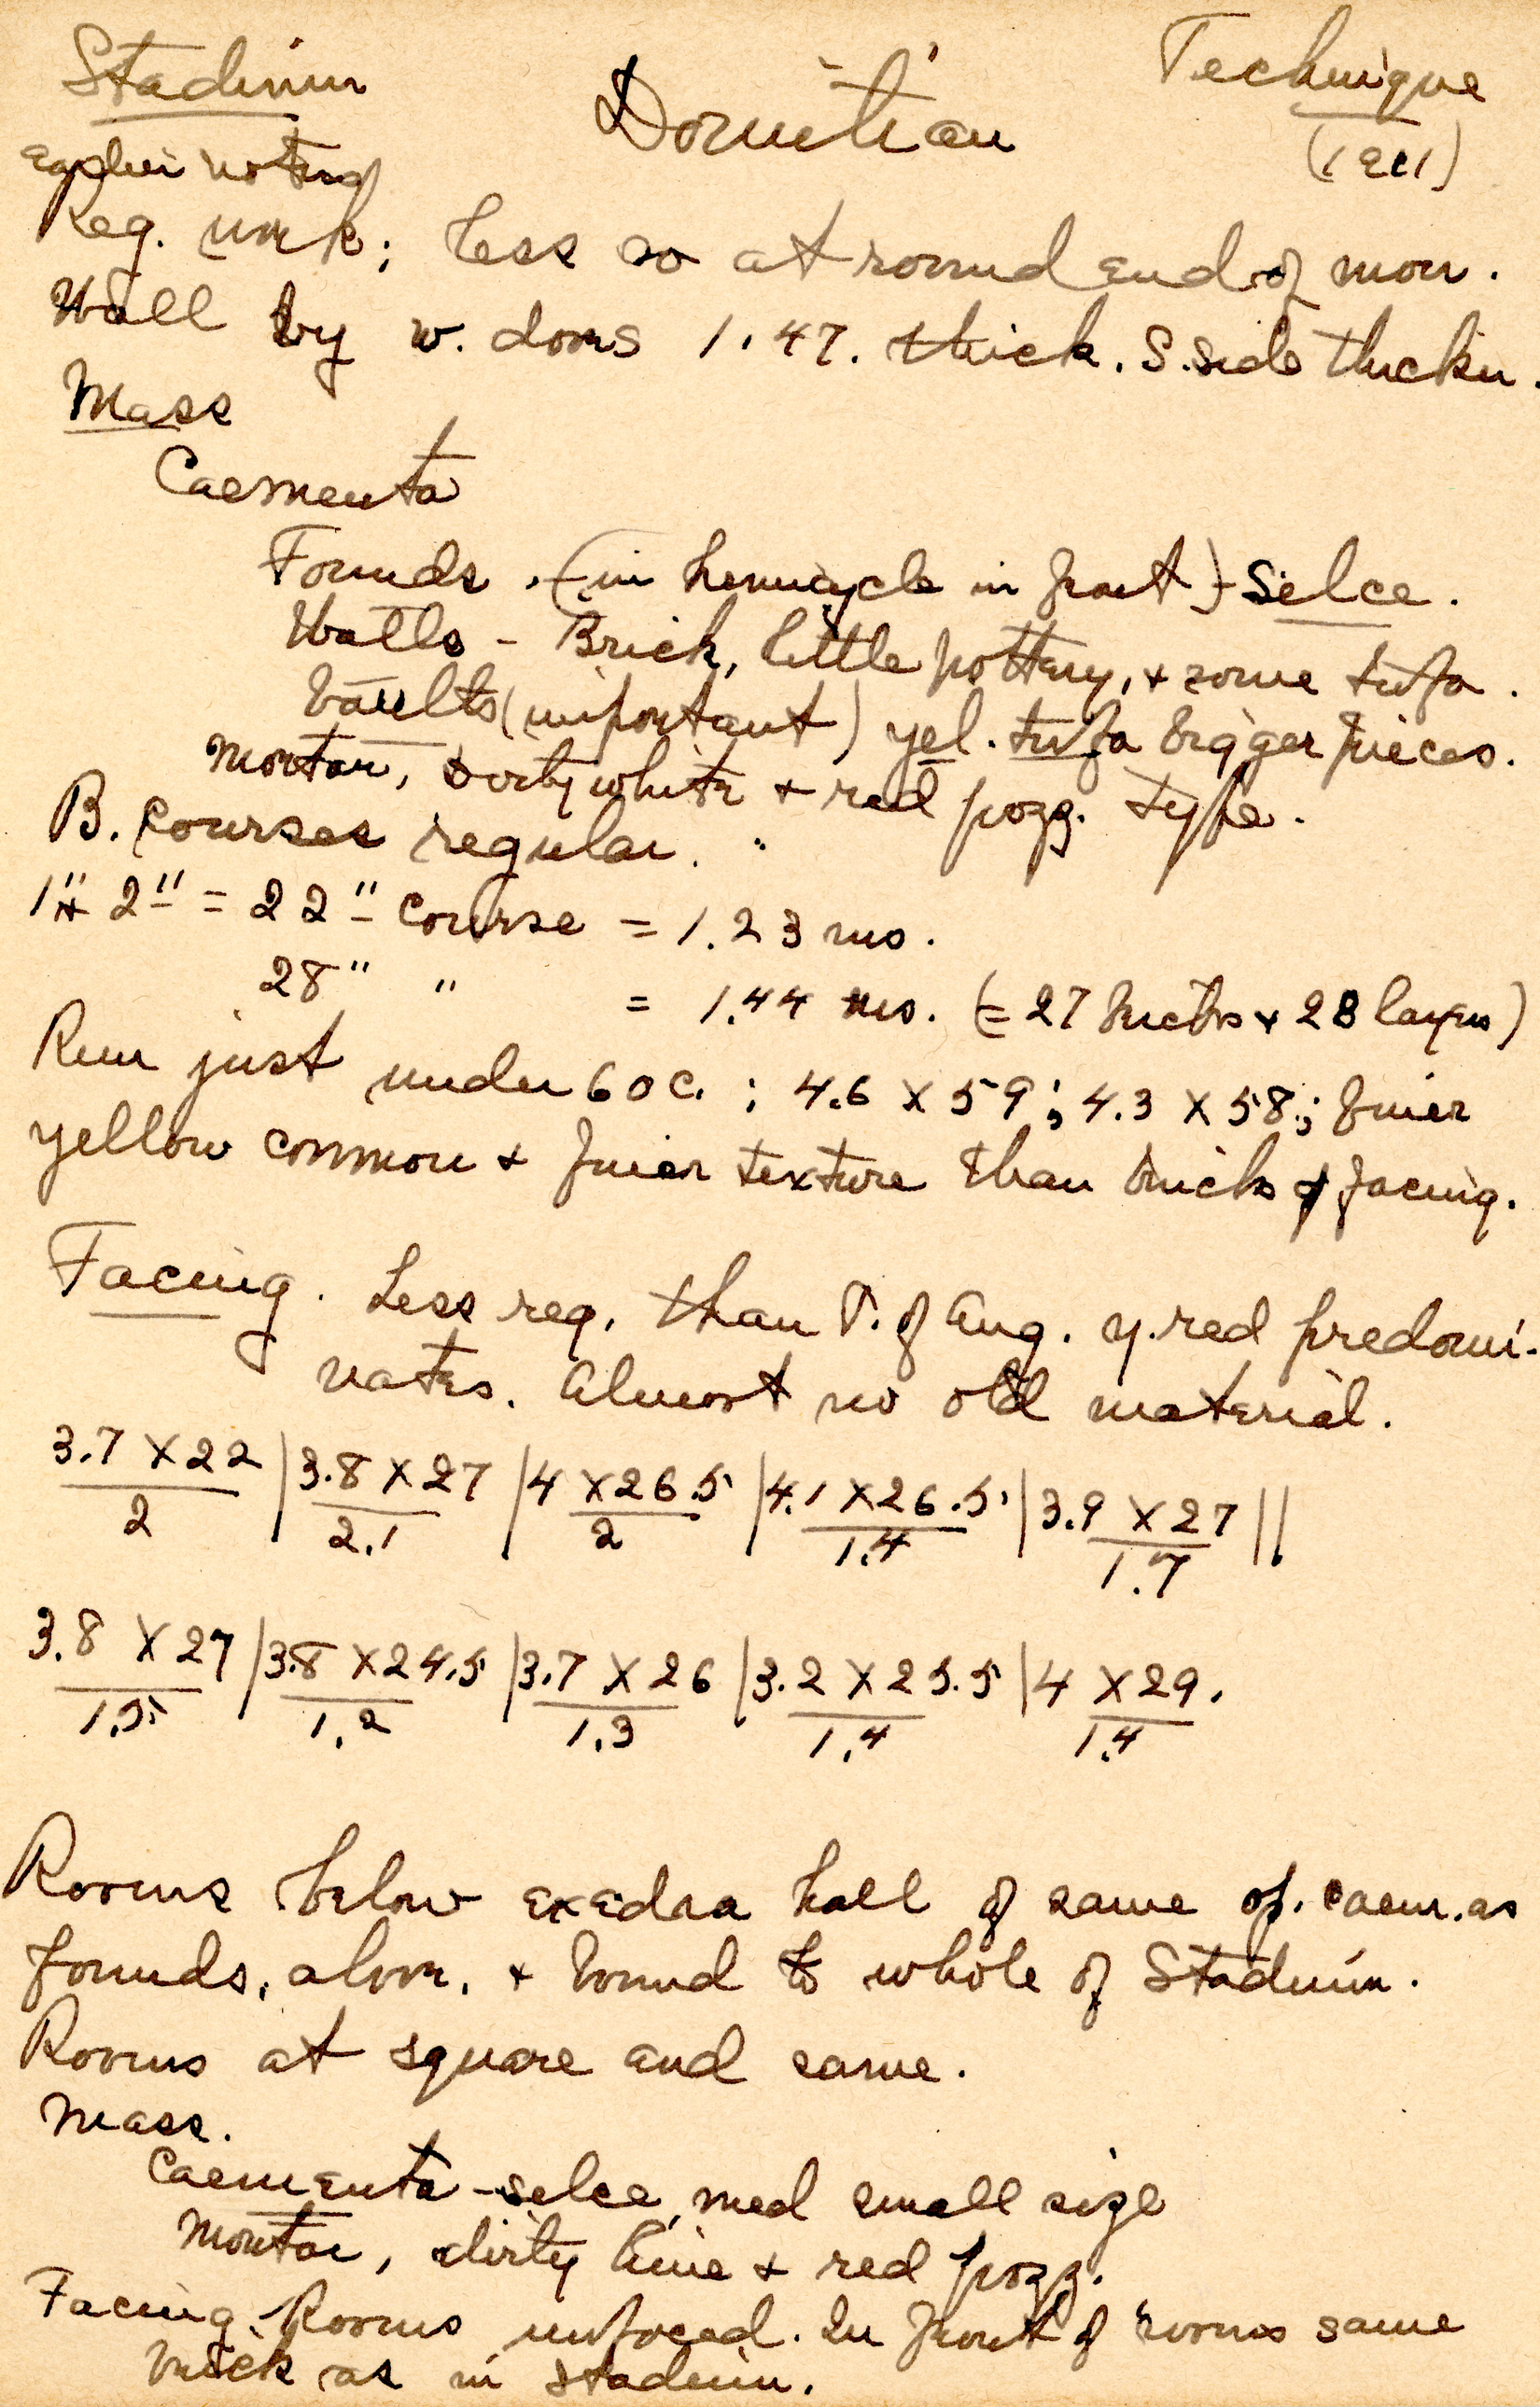 Stadium Domitian Technique
(1911)
Reg. work; less so at round end of mon.
Wall by w. doors 1.47. thick. S. side thicker.
Mass
Caementa
Founds. - (in hemicycle in front) - Selce.
Walls - Brick, little pottery, + some tufa.
Vaults (important) yel. tufa bigger pieces.
Mortar, dirty white + red pozz. type.
B. courses regular.
1" + 2" = 22" course = 1.23 ms.
28" " = 1.44 ms. (= 27 bricks + 28 layers)
Run just under 60 c. ; 4.6 X 59 ; 4.3 X 58 ; finer
yellow common + finer texture than bricks of facing.
Facing. Less reg. than P. of Aug. y. red predomi-
nates. Almost no old material.
3.7 X 22 | 3.8 X 27 | 4 X 26.5 | 4.1 X 26.5 | 3.9 X 27 ||
2 2.1 2 1.4 1.7
3.8 X 27 | 3.8 X 24.5 | 3.7 X 26 | 3.2 X 25.5 | 4 X 29.
1.5 1.2 1.3 1.4 1.4
Rooms below exedra hall of same op. caem. as
founds. above, + bound to whole of Stadium.
Rooms at square end same.
Mass.
Caementa - selce, med small size
Mortar, dirty lime + red pozz.
Facing. Rooms unfaced. In front of rooms same
brick as in stadium.